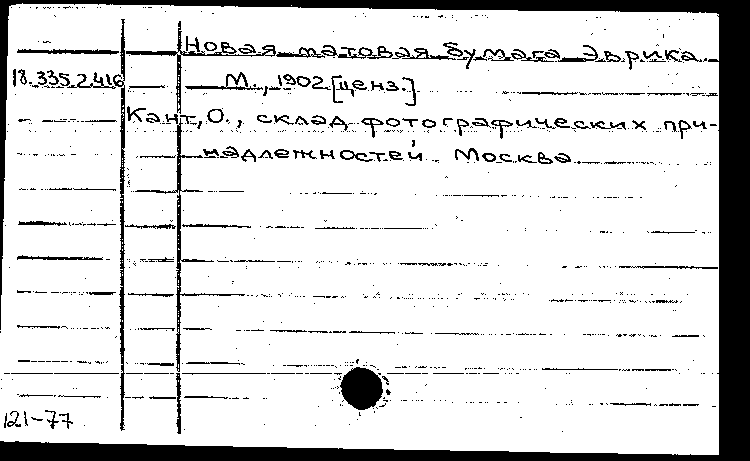 Новая матовая бумага Эврика
18.335.2.416 М., 1902 [ценз.]
Кант, О., склад фотографических при-
надлежностей. Москва
121-77